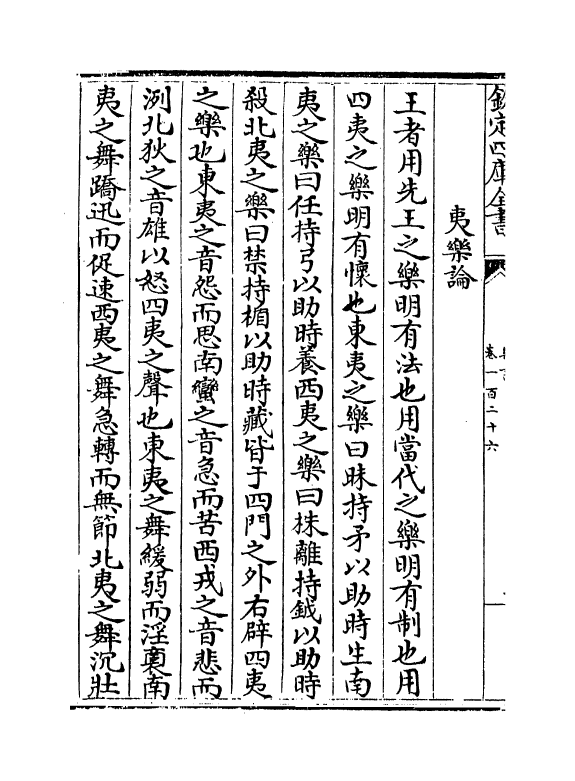 欽定四庫全書
卷一百二十六
夷樂論
王者用先王之樂明有法也用當代之樂明有制也用
四夷之樂明有懷也東夷之樂曰昧持矛以助時生南
夷之樂曰任持弓以助時養西夷之樂曰株離持鉞以助時
殺北夷之樂曰禁持楯以助時藏皆于四門之外右辟四夷
之樂也東夷之音怨而思南蠻之音急而苦西戎之音悲而
洌北狄之音雄以怒四夷之聲也東夷之舞緩弱而淫裒南
夷之舞蹻迅而促速西夷之舞急轉而無節北夷之舞沉壯